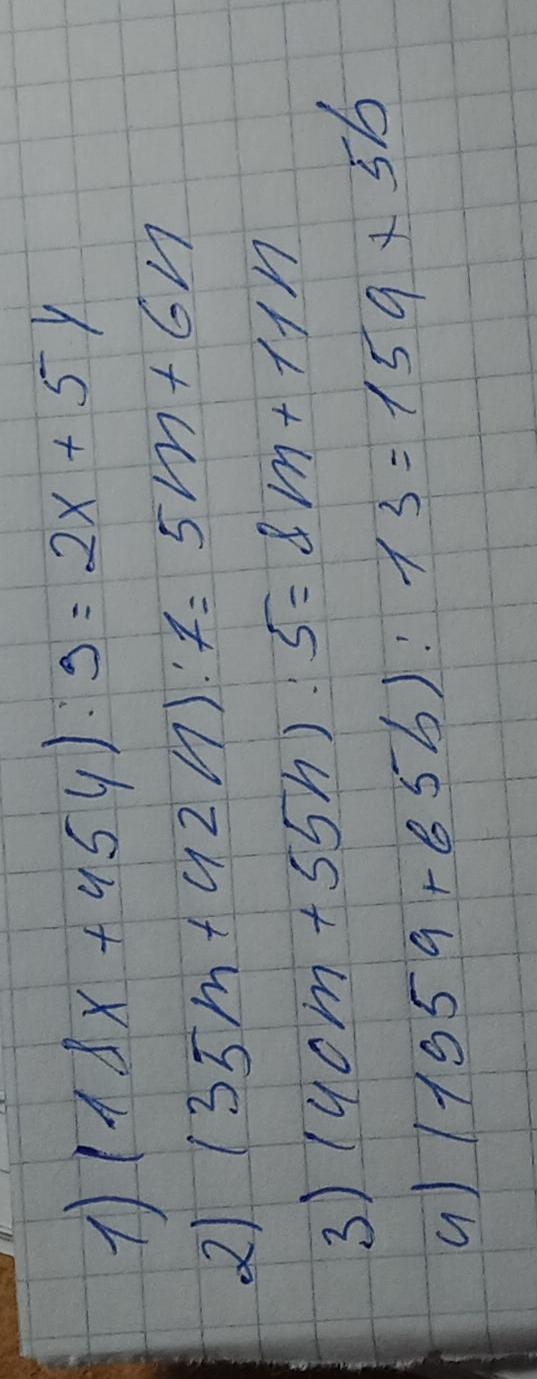 1) (18x + 45y) : 9 = 2x + 5y
2) (35m + 42n) : 7 = 5m + 6n
3) (40m + 55n) : 5 = 8m + 11n
4) (195a + 65b) : 13 = 15a + 5b